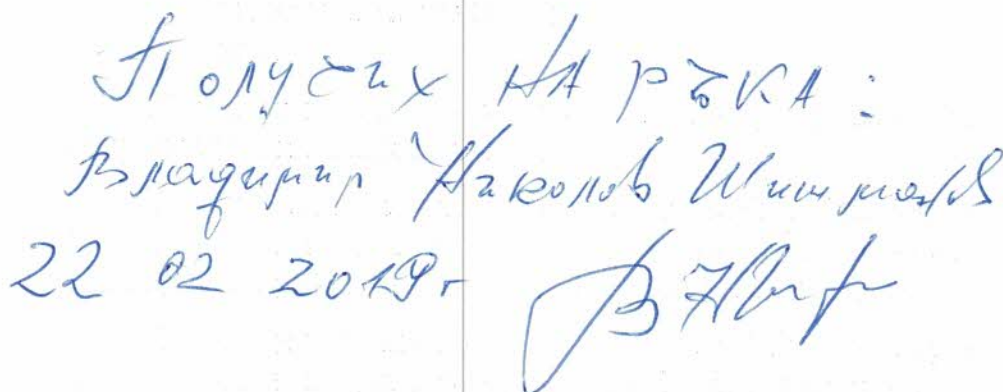 Получих НА РЪКА:
Владимир Николов Шишманов
22 02 2019г